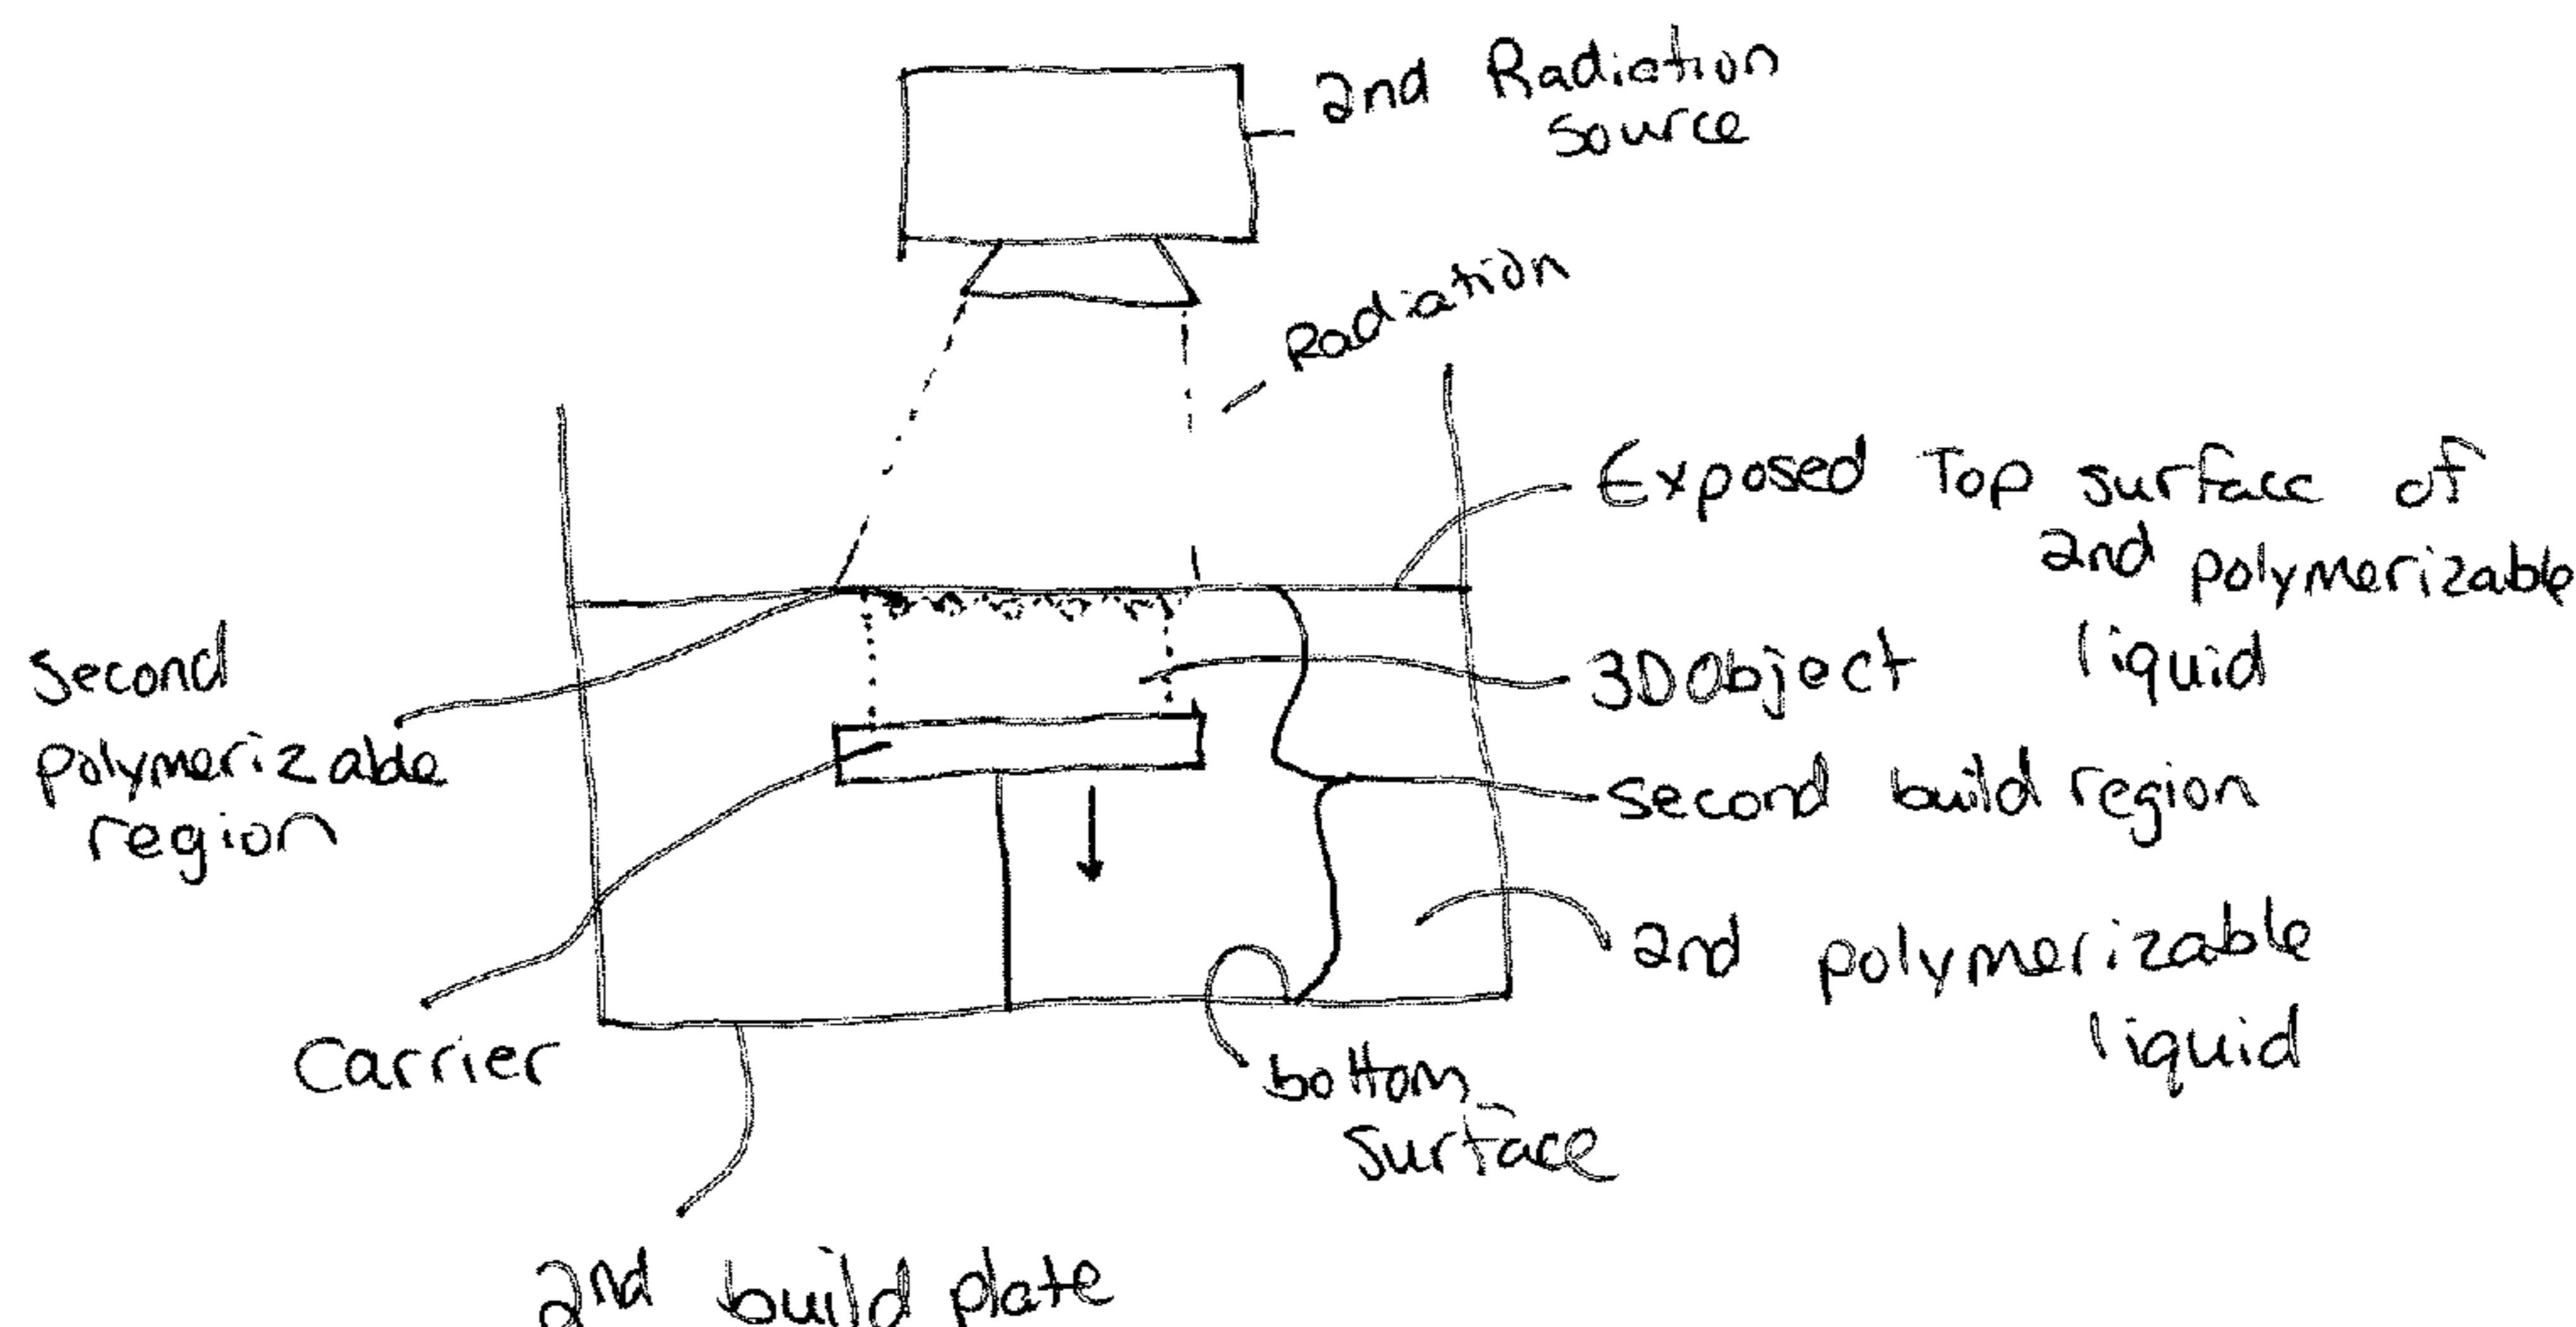 2nd Radiation
Source
Radiation
Exposed Top surface of
2nd polymerizable
liquid
Second
polymerizable
region
3D Object
second build region
2nd polymerizable
liquid
Carrier
bottom
surface
2nd build plate